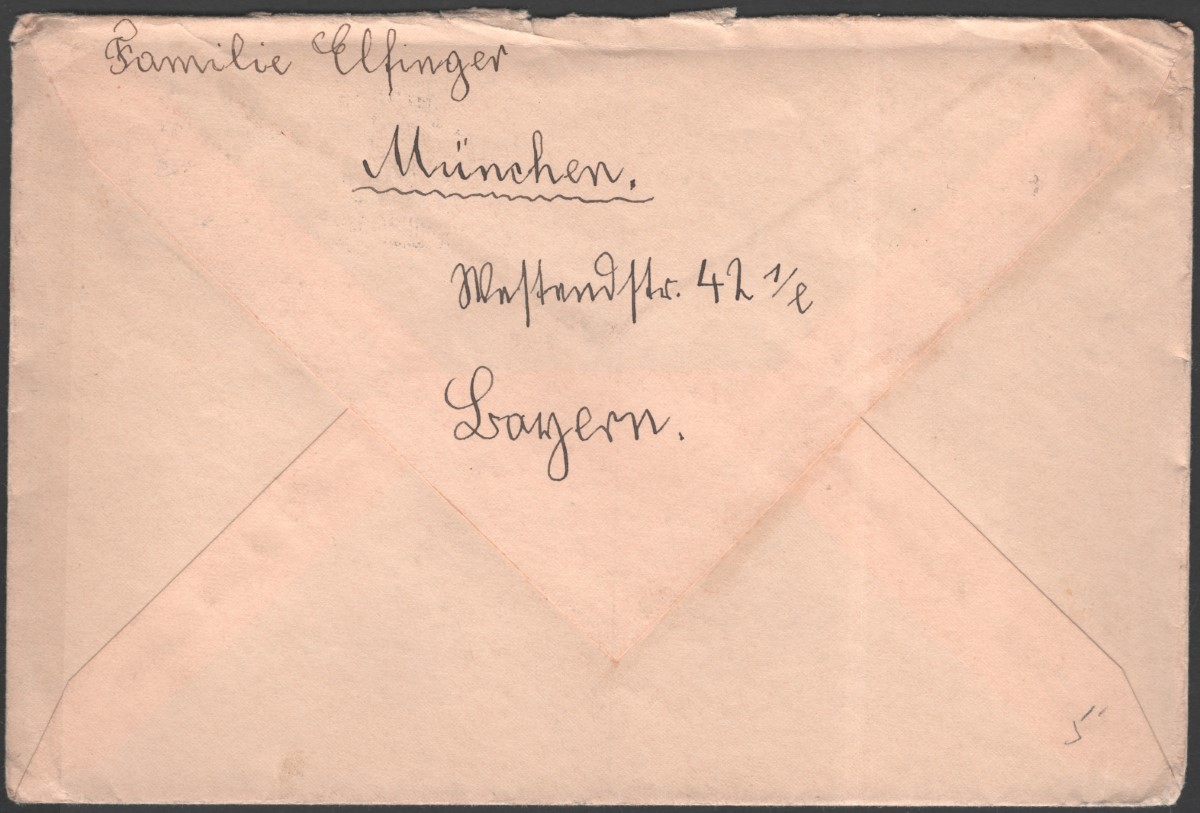 Familie Elfinger
München.
Westendstr. 42 1/l
Bayern.
5